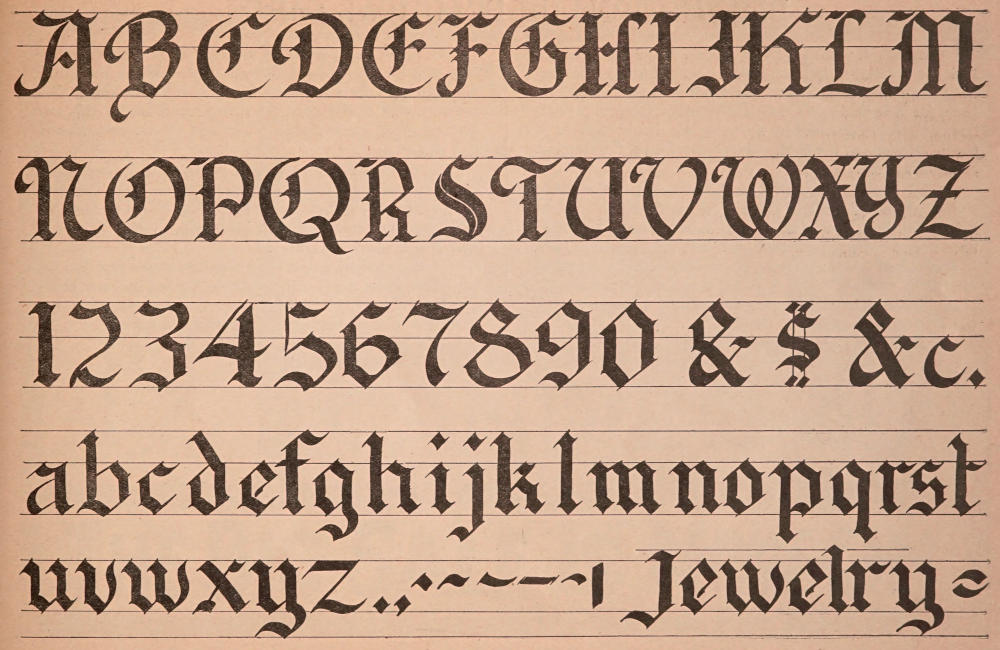 ABCDEFGHIJKLM
NOPQRSTUVWXYZ
1234567890 & $ &c.
abcdefghijklmnopqrst
uvwxyz.,  Jewelry=